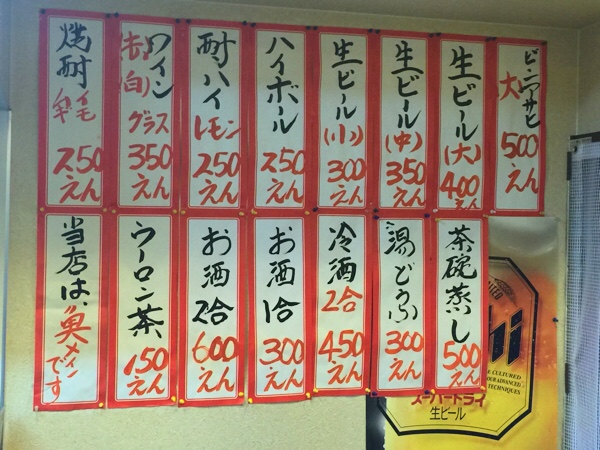 ビンアサヒ
大
500
えん
生ビール
(大)
400
えん
生ビール
(中)
350
えん
生ビール
(小)
300
えん
ハイボール
250
えん
酎ハイ
レモン
250
えん
ワイン
(赤)
(白)
グラス
350
えん
焼酎
250
えん
茶碗蒸し
500
えん
湯どうふ
300
えん
冷酒
2合
450
えん
お酒
1合
300
えん
お酒
2合
600
えん
ウーロン茶
150
えん
当店は、魚メイン
です
hi
スーパードライ
生ビール